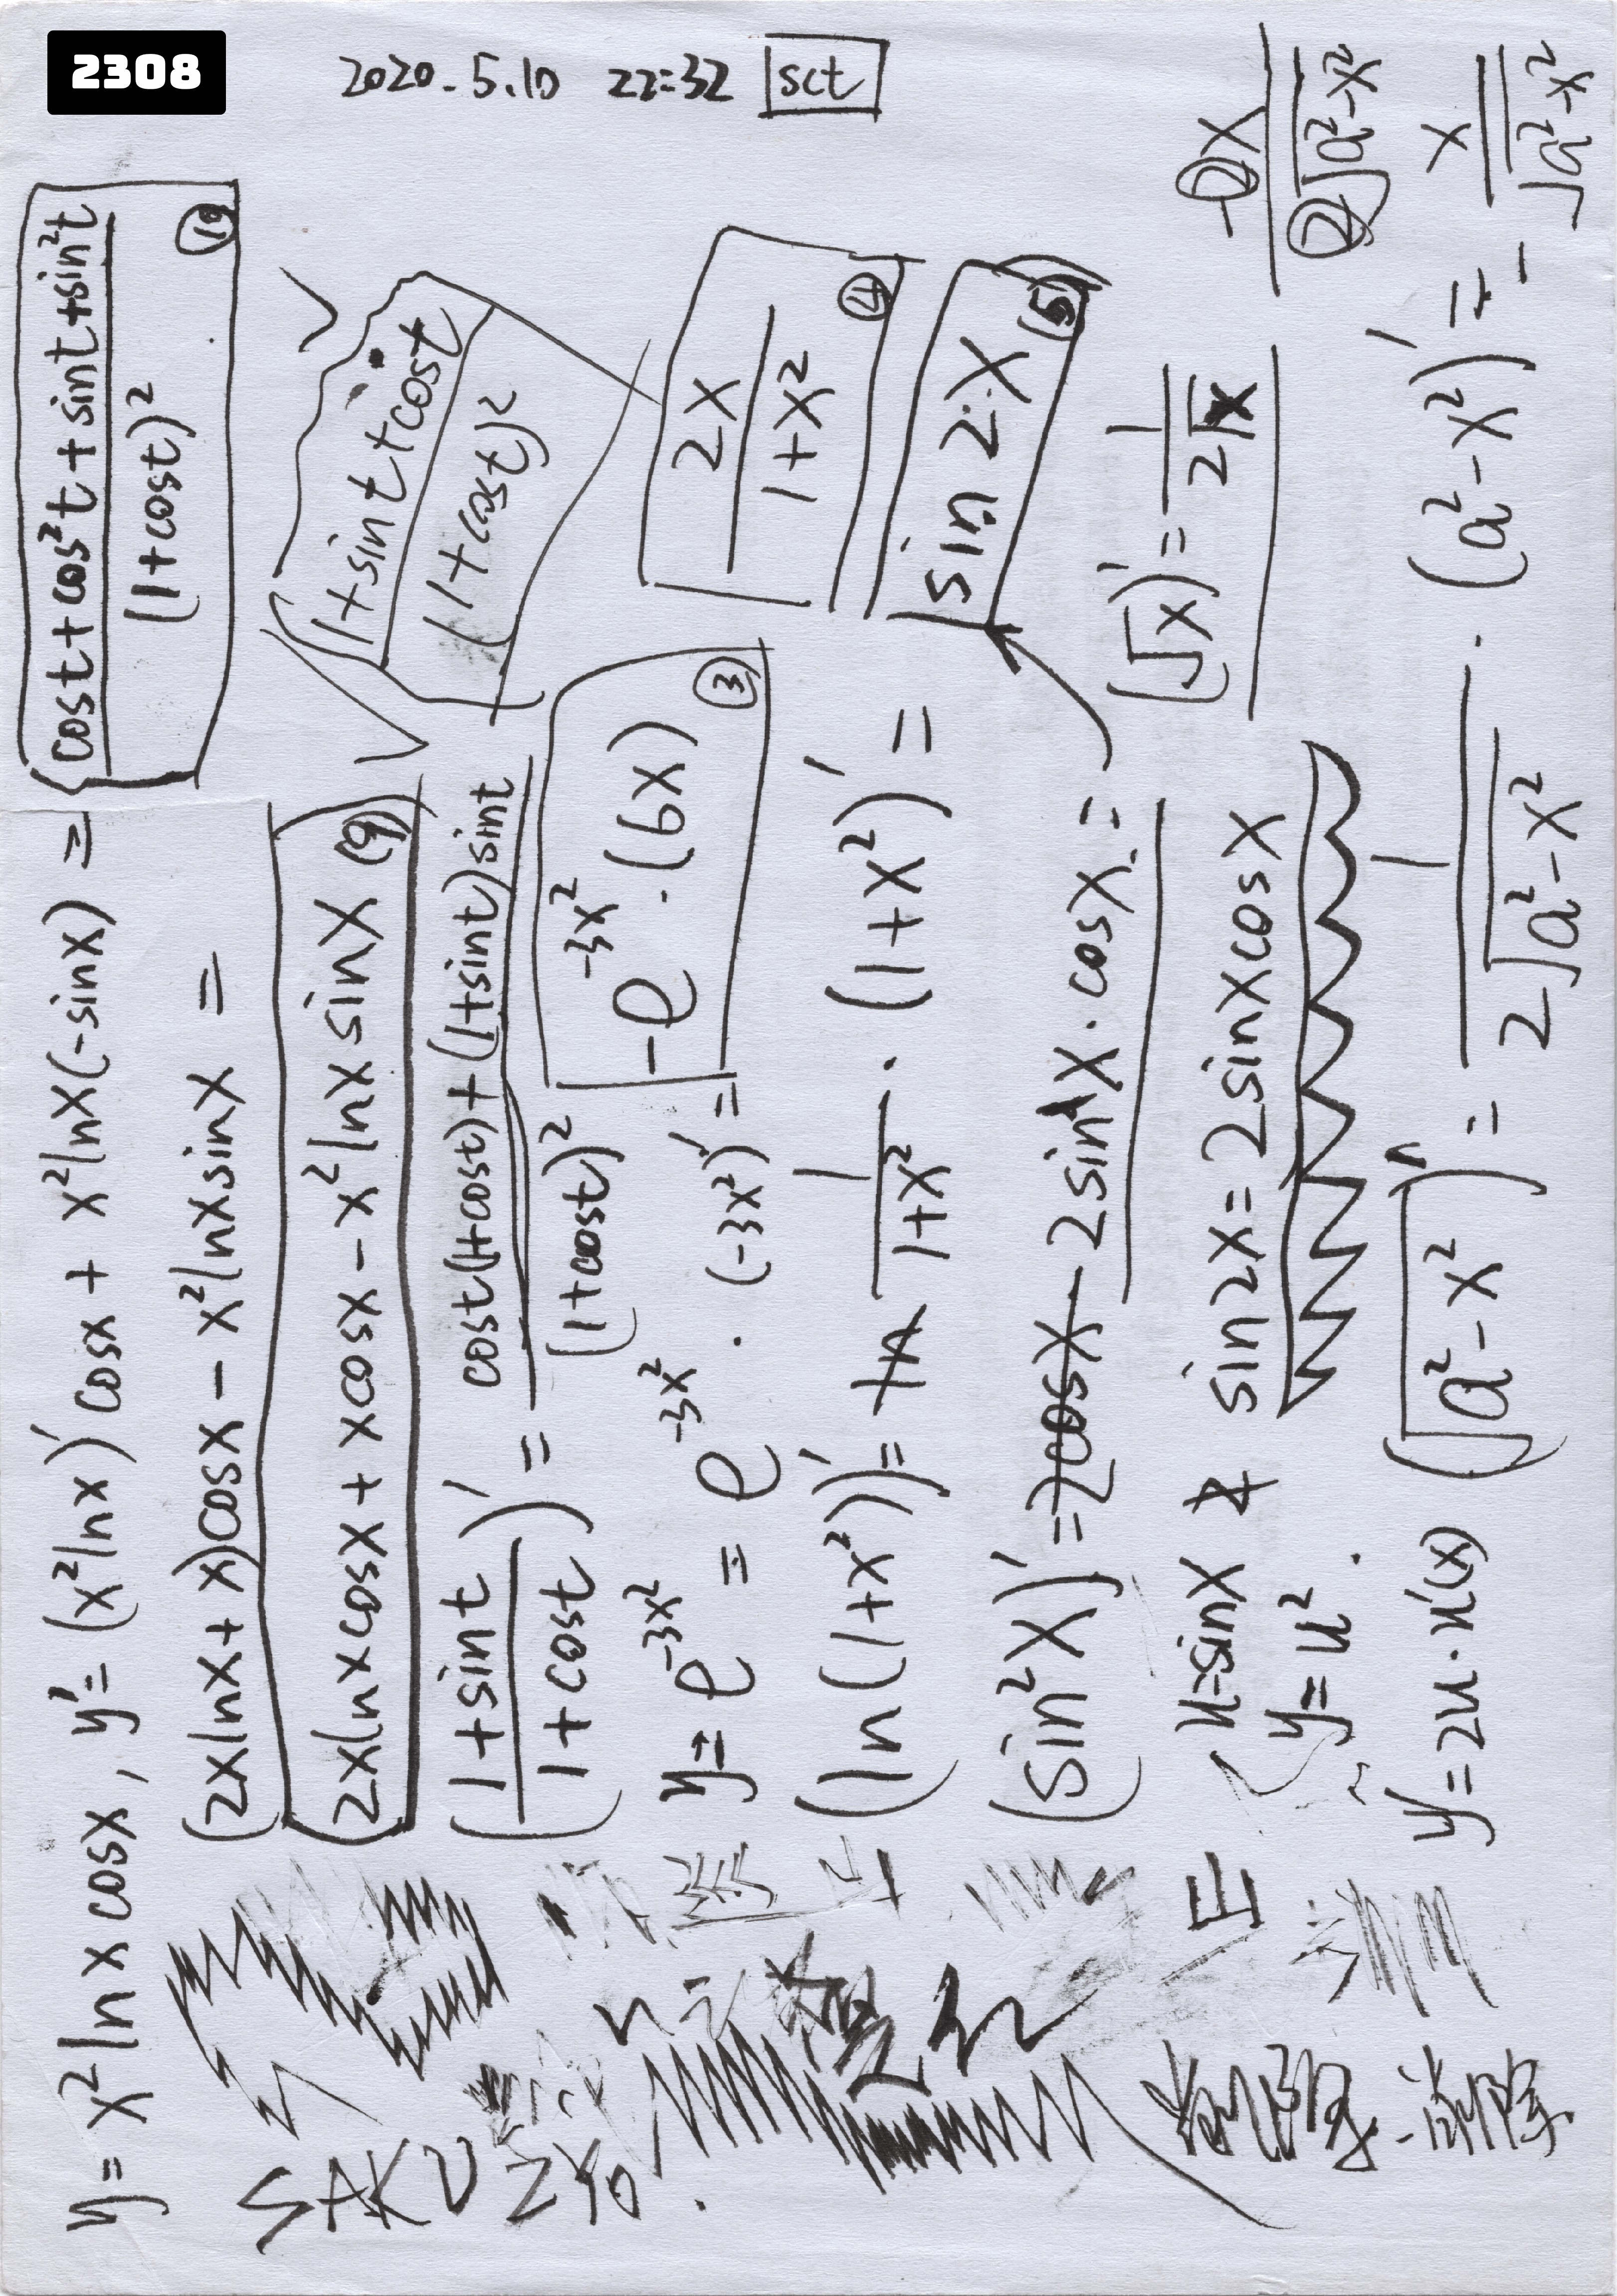 2308
2020.5.10 22:32 sct
y = x² ln x cosx, y' = (x² ln x)' cosx + x² lnx(-sinx) =
(2x lnx + x)cosx - x² lnx sinx =
2x lnx cosx + x cosx - x² lnx sinx (9)
(1+sint / 1+cost)' = cost(1+cost) + (1+sint)sint / (1+cost)²
cost + cos²t + sint + sin²t / (1+cost)² (10)
1+sint+cost / (1+cost)²
y = e^-3x² = e^-3x² · (-3x²)' =
-e^-3x² · (6x) (3)
(ln(1+x²))' = 1 / 1+x² · (1+x²)' =
2x / 1+x² (4)
(sin²x)' = 2sinx · cosx =
sin2x (5)
u=sinx
y=u²
sin2x = 2sinxcosx
(√x)' = 1 / 2√x
y' = 2u · u'(x)
(√a²-x²)' = 1 / 2√a²-x² · (a²-x²)' =
-2x / 2√a²-x²
- x / √a²-x²
SAKU